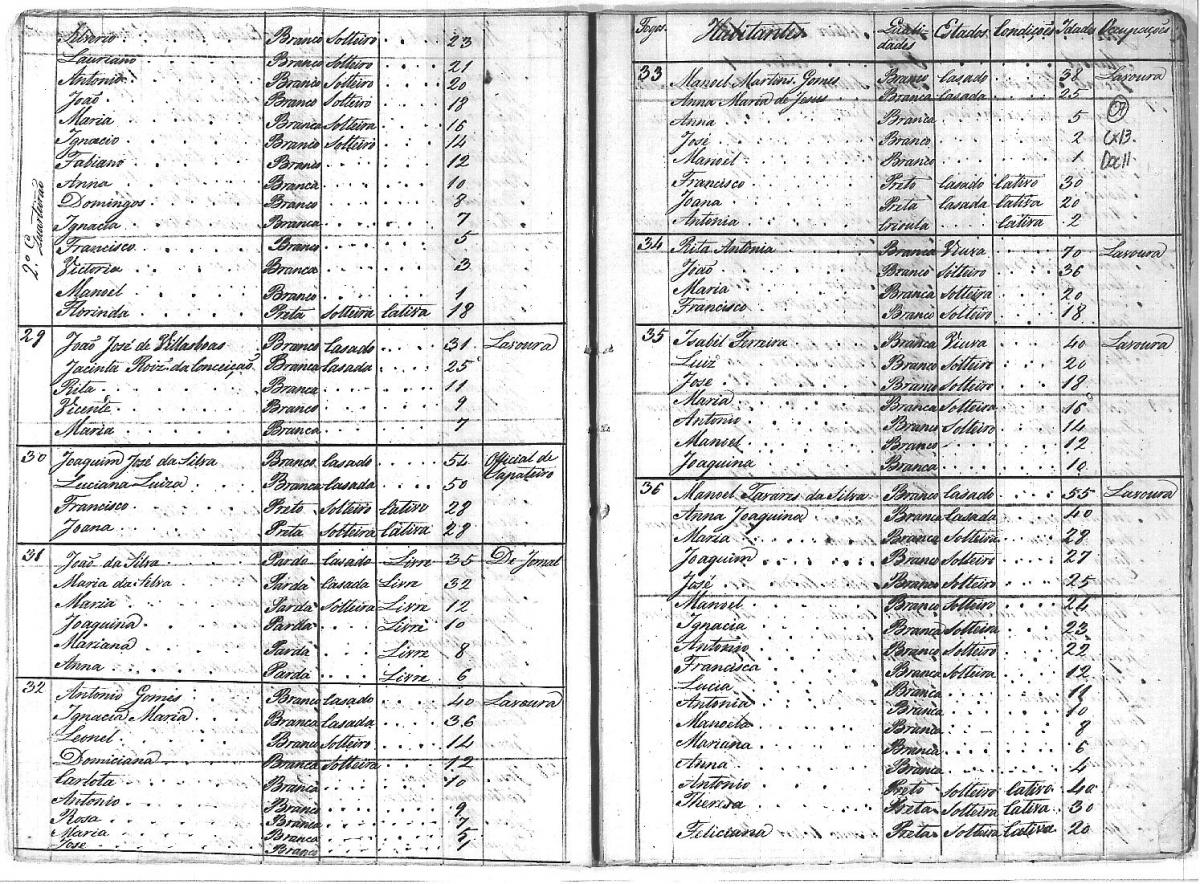 2.º Quarteirão
Liberio Branco Solteiro 23
Laureano Branco Solteiro 21
Antonio Branco Solteiro 20
João Branco Solteiro 18
Maria Branca Solteira 16
Ignacio Branco Solteiro 14
Fabiano Branco 12
Anna Branca 10
Domingos Branco 8
Ignacia Branca 7
Francisco Branco 5
Victoria Branca 3
Manoel Branco 1
Florinda Preta Solteira Cativa 18
29 João José de Villasboas Branco Casado 31 Lavoura
Jacinta Roiz da Conceição Branca Casada 25
Rita Branca 11
Vicente Branco 9
Maria Branca 7
30 Joaquim José da Silva Branco Casado 54 Oficial de Sapateiro
Luciana Luiza Branca Casada 50
Francisco Preto Solteiro Cativo 29
Joana Preta Solteira Cativa 28
31 João da Silva Pardo Casado Livre 35 De Jornal
Maria da Silva Parda Casada Livre 32
Maria Parda Solteira Livre 12
Joaquina Parda Livre 10
Mariana Parda Livre 8
Anna Parda Livre 6
32 Antonio Gomes Branco Casado 40 Lavoura
Ignacia Maria Branca Casada 36
Leonel Branco Solteiro 14
Domiciana Branca Solteira 12
Carlota Branca 10
Antonio Branco 9
Rosa Branca 7
Maria Branca 5
José Branco
Fogos. Habitantes Qualidades Estados Condições Idades Occupações
33 Manoel Martins Gomes Branco Casado 38 Lavoura
Anna Maria de Jesus Branca Casada 25
Anna Branca 5
José Branco 2 Cx13
Manoel Branco 1 Doc11
Francisco Preto Casado Cativo 30
Joana Preta Casada Cativa 20
Antonia Crioula Cativa 2
34 Rita Antonia Branca Viuva 70 Lavoura
João Branco Solteiro 36
Maria Branca Solteira 20
Francisco Branco Solteiro 18
35 Isabel Ferreira Branca Viuva 40 Lavoura
Luiz Branco Solteiro 20
Jose Branco Solteiro 18
Maria Branca Solteira 16
Antonio Branco Solteiro 14
Manoel Branco 12
Joaquina Branca 10
36 Manoel Tavares da Silva Branco Casado 55 Lavoura
Anna Joaquina Branca Casada 40
Maria Branca Solteira 29
Joaquim Branco Solteiro 27
José Branco Solteiro 25
Manoel Branco Solteiro 24
Ignacia Branca Solteira 23
Antonio Branco Solteiro 22
Francisca Branca Solteira 12
Lucia Branca 11
Antonia Branca 10
Manoela Branca 8
Mariana Branca 6
Anna Branca 4
Antonio Preto Solteiro Cativo 40
Thereza Preta Solteira Cativa 30
Feliciana Preta Solteira Cativa 20